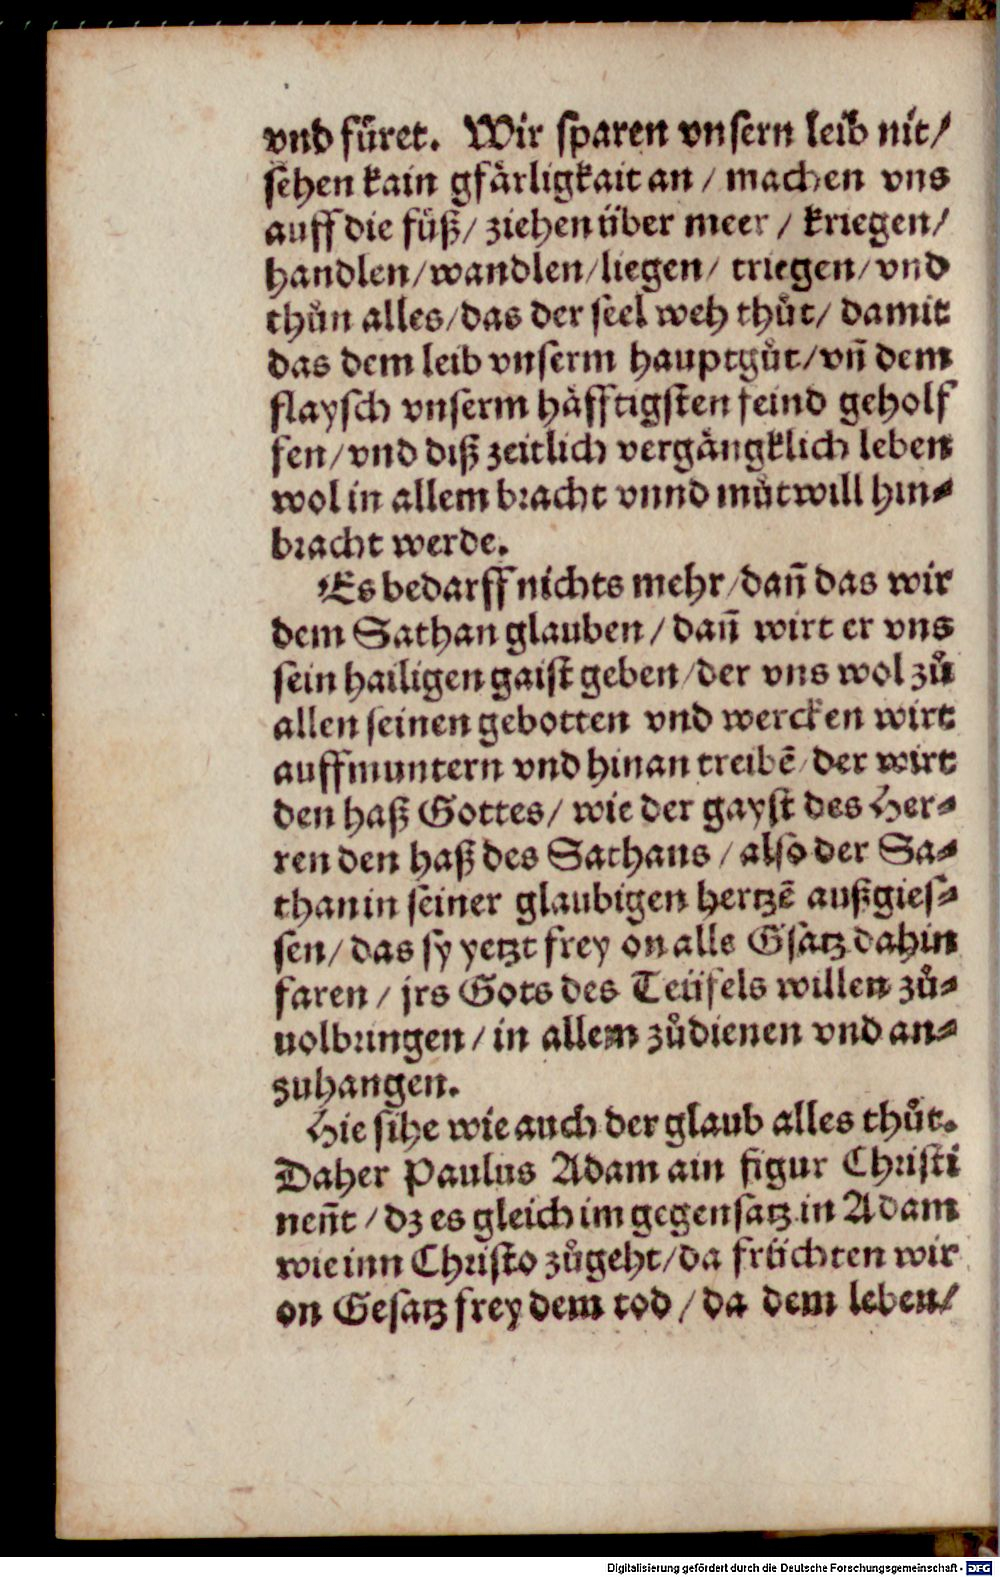 vnd füret. Wir sparen vnsern leib nit/
sehen kain gfärligkait an / machen vns
auff die füß/ ziehen über meer / kriegen/
handlen/wandlen/liegen/ triegen/vnd
thůn alles/das der seel weh thůt/ damit
das dem leib vnserm hauptgůt/vñ dem
flaysch vnserm häfftigsten feind geholf
fen/vnd diß zeitlich vergängklich leben
wol in allem bracht vnnd můtwill hin⸗
bracht werde.
Es bedarff nichts mehr/dañ das wir
dem Sathan glauben/dañ wirt er vns
sein hailigen gaist geben/der vns wol zů
allen seinen gebotten vnd wercken wirt
auffmuntern vnd hinan treibẽ/der wirt
den haß Gottes/ wie der gayst des Her⸗
ren den haß des Sathans / also der Sa⸗
than in seiner glaubigen hertzẽ außgies⸗
sen/ das sy yetzt frey on alle Gsatz dahin
faren / jrs Gots des Teüfels willen zů⸗
uolbringen / in allem zůdienen vnd an⸗
zuhangen.
Hie sihe wie auch der glaub alles thůt.
Daher Paulus Adam ain figur Christi
neñt / dz es gleich im gegensatz in Adam
wie inn Christo zůgeht/da früchten wir
on Gesatz frey dem tod / da dem leben/
Digitalisierung gefördert durch die Deutsche Forschungsgemeinschaft - DFG